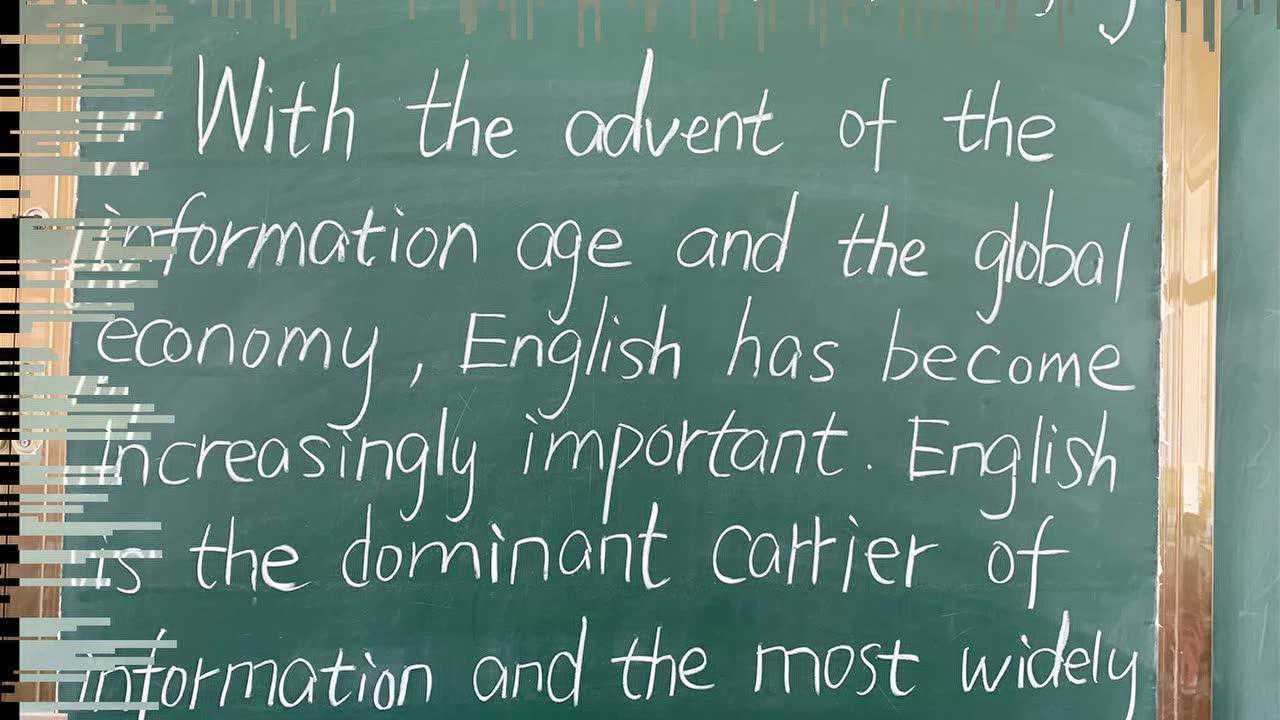 With the advent of the
information age and the global
economy, English has become
increasingly important. English
is the dominant carrier of
information and the most widely